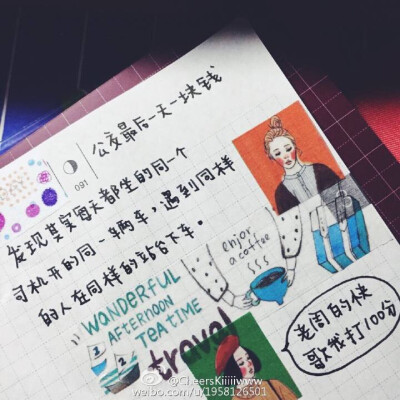 公交最后一天一块钱
091
发现其实每天都坐的同一个
司机开的同一辆车，遇到同样
的人在同样的站台下车。
enjoy
a coffee
WANDERFUL
AFTERNOON
TEA TIME
travel
老周的快
歌我打100分
@CheersKiiiiiwww
weibo.com/u/1958126501